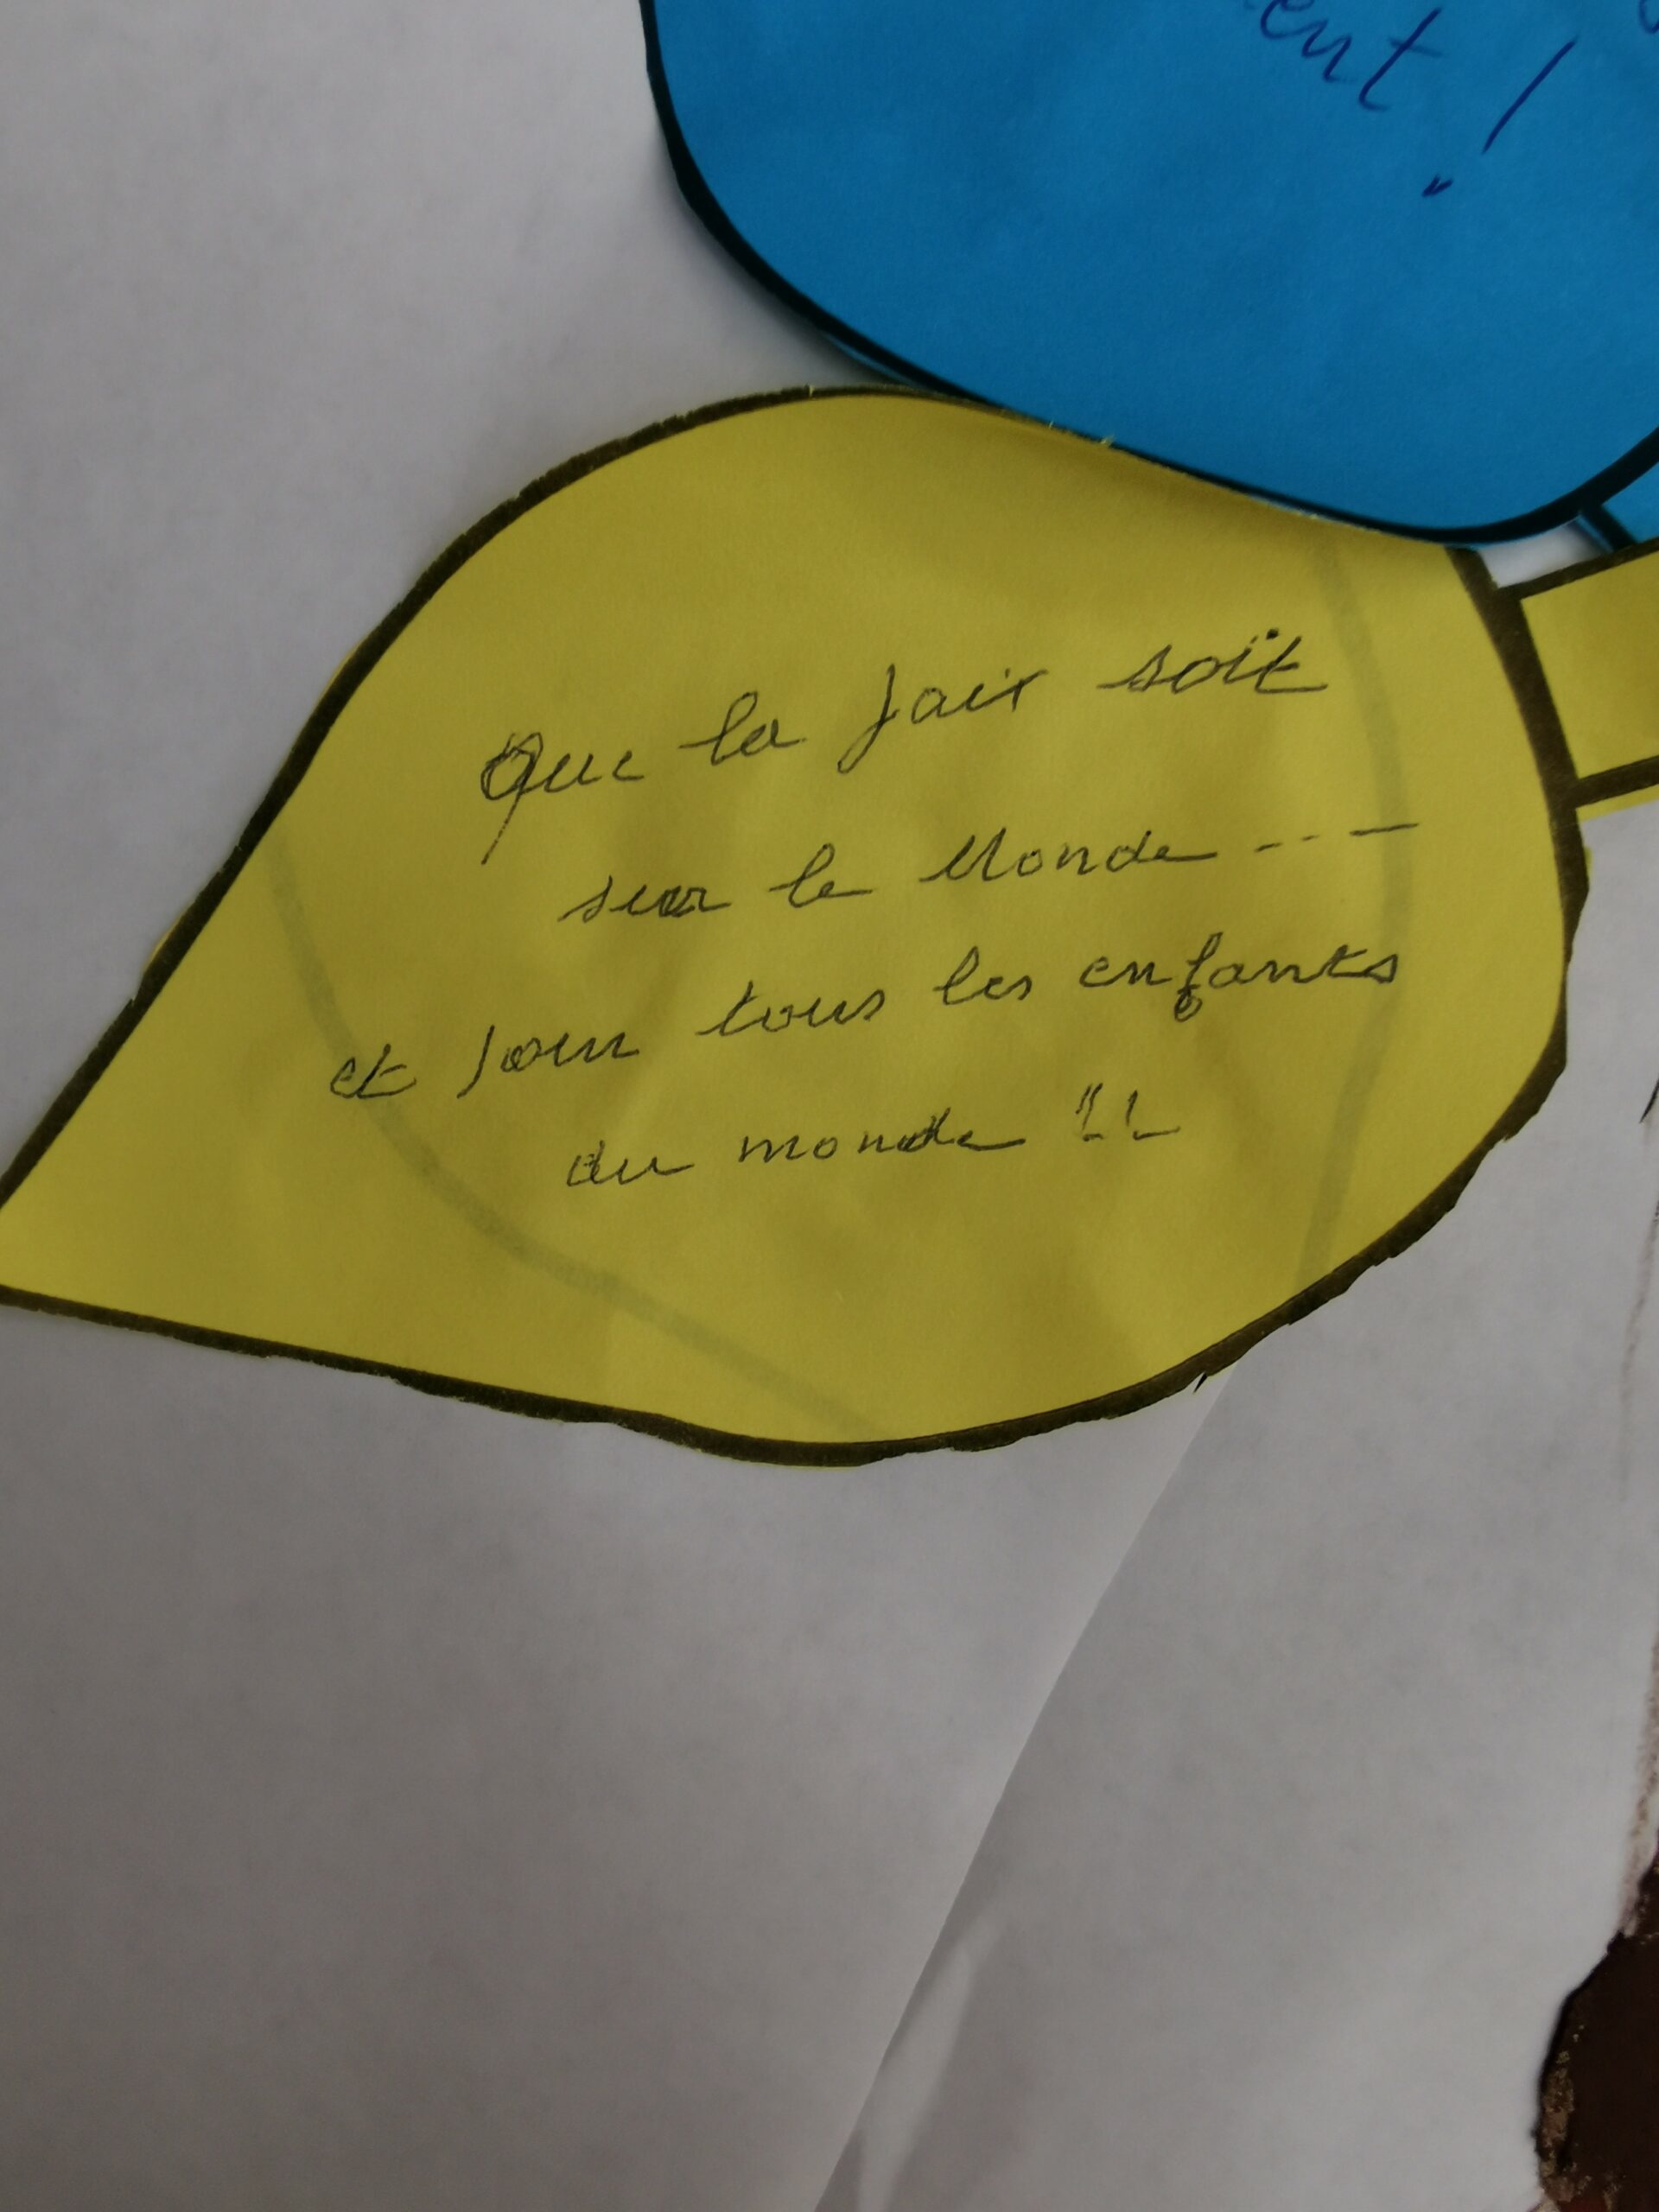 ent !
Que la paix soit
sur le Monde ----
et pour tous les enfants
du monde !!